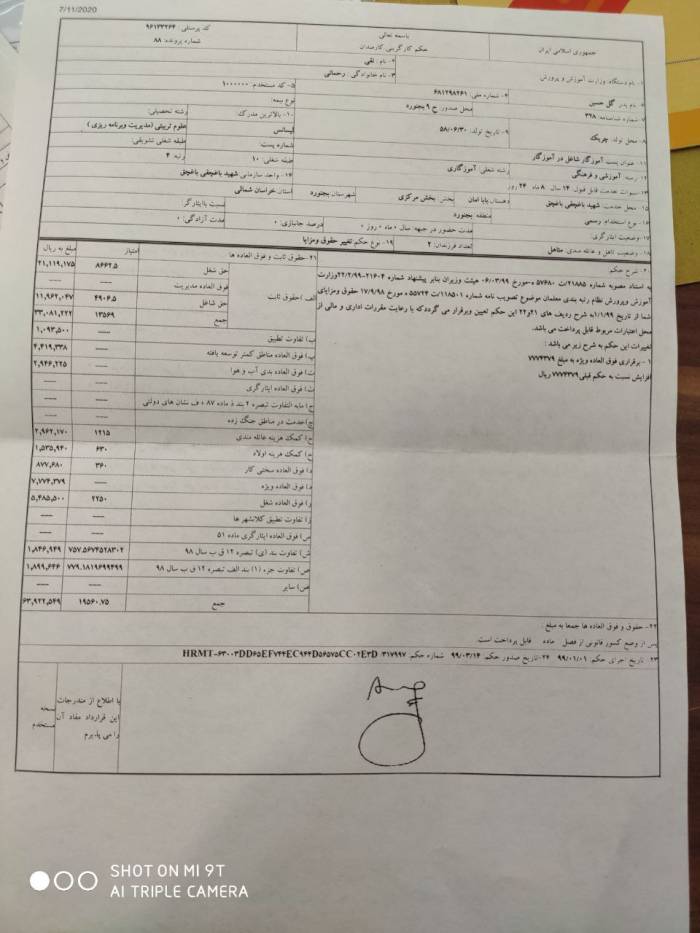 7/11/2020
باسمه تعالی
کد پرسنلی: ۹۶۱۳۳۲۶۴
جمهوری اسلامی ایران
حکم کارگزینی کارمندان
شماره پرونده: ۸۸
۱- نام دستگاه: وزارت آموزش و پرورش
۲- نام: تقی
۳- نام خانوادگی: رحمانی
۴- شماره ملی: ۶۸۱۲۹۸۲۶۱
۵- کد مستخدم: ۱۰۰۰۰۰۰
۶- نام پدر: گل حسین
۷- شماره شناسنامه: ۳۲۸
محل صدور: ح ۹ بجنورد
نوع بیمه:
۸- محل تولد: چربک
۹- تاریخ تولد: ۵۸/۰۶/۳۰
۱۰- بالاترین مدرک:
لیسانس
رشته تحصیلی:
علوم تربیتی (مدیریت وبرنامه ریزی )
۱۱- عنوان پست: آموزگار شاغل در آموزگار
شماره پست:
طبقه شغلی تشویقی:
۱۲- رسته: آموزشی و فرهنگی
رشته شغلی: آموزگاری
طبقه شغلی: ۱۰
رتبه: ۴
۱۳- سنوات خدمت قابل قبول: ۱۴ سال ۸ ماه ۲۴ روز
۱۴- واحد سازمانی: شهید باغچقی باغچق
۱۵- محل خدمت: شهید باغچقی باغچق
دهستان: بابا امان
بخش: بخش مرکزی
شهرستان: بجنورد
استان: خراسان شمالی
۱۶- نوع استخدام: رسمی
منطقه: بجنورد
۱۷- وضعیت ایثارگری:
مدت حضور در جبهه: سال ۰ ماه ۰ روز ۰
درصد جانبازی: ۰
نسبت با ایثارگر:
مدت آزادگی: ۰
۱۸- وضعیت تاهل و عائله مندی: متاهل
تعداد فرزندان: ۲
۱۹- نوع حکم: تغییر حقوق ومزایا
۲۰- شرح حکم
به استناد مصوبه شماره ۲۱۸۸۵/ت ۵۷۶۸۰ ه-مورخ ۰۶/۰۳/۹۹ هیئت وزیران بنابر پیشنهاد شماره ۲۱۶۰۴-۲۲/۲/۹۹وزارت
آموزش وپرورش نظام رتبه بندی معلمان موضوع تصویب نامه شماره ۱۱۸۵۰۱/ت ۵۵۷۲۴ ه مورخ ۱۷/۹/۹۸ حقوق ومزایای
شما از تاریخ ۱/۱/۹۹به شرح ردیف های ۲۱و۲۲ این حکم تعیین وبرقرار می گردد که با رعایت مقررات اداری و مالی از
محل اعتبارات مربوط قابل پرداخت می باشد.
تغییرات این حکم به شرح زیر می باشد :
۱ - برقراری فوق العاده ویژه به مبلغ ۷۷۷۴۳۷۹
افزایش نسبت به حکم قبلی۷۷۷۴۳۷۹ ریال
۲۱- حقوق ثابت و فوق العاده ها
امتیاز
مبلغ به ریال
الف )حقوق ثابت
حق شغل ۸۶۶۲.۵ ۲۱,۱۱۹,۱۷۵
فوق العاده مدیریت ---- ----
حق شاغل ۴۹۰۶.۵ ۱۱,۹۶۲,۰۴۷
جمع ۱۳۵۶۹ ۳۳,۰۸۱,۲۲۲
ب) تفاوت تطبیق ---- ۱,۰۹۳,۵۰۰
پ) فوق العاده مناطق کمتر توسعه یافته ---- ۴,۴۱۹,۳۳۸
ت) فوق العاده بدی آب و هوا ---- ۲,۹۴۶,۲۲۵
ث) فوق العاده ایثارگری ---- ----
ج) مابه التفاوت تبصره ۲ بند ذ ماده ۸۷ + ف نشان های دولتی ---- ----
چ)خدمت در مناطق جنگ زده ---- ----
ح) کمک هزینه عائله مندی ۱۲۱۵ ۲,۹۶۲,۱۷۰
خ) کمک هزینه اولاد ۶۳۰ ۱,۵۳۵,۹۴۰
د) فوق العاده سختی کار ۳۶۰ ۸۷۷,۶۸۰
ذ) فوق العاده ویژه ---- ۷,۷۷۴,۳۷۹
ر) فوق العاده شغل ۲۲۵۰ ۵,۴۸۵,۵۰۰
ز) تفاوت تطبیق کلانشهر ها ---- ----
س) فوق العاده ایثارگری ماده ۵۱ ---- ----
ش) تفاوت بند (ی) تبصره ۱۲ ق ب سال ۹۸ ۷۵۷.۵۶۷۴۵۲۸۳۰۲ ۱,۸۴۶,۹۴۹
ص) تفاوت جزء (۱) بند الف تبصره ۱۲ ق ب سال ۹۸ ۷۷۹.۱۸۱۹۶۹۹۴۹۹ ۱,۸۹۹,۶۴۶
ض) سایر ---- ----
جمع ۱۹۵۶۰.۷۵ ۶۳,۹۲۲,۵۴۹
۲۲- حقوق و فوق العاده ها جمعا به مبلغ :
پس از وضع کسور قانونی از فصل ماده قابل پرداخت است.
۲۳- تاریخ اجرای حکم: ۹۹/۰۱/۰۱ ۲۴-تاریخ صدور حکم: ۹۹/۰۳/۱۴ شماره حکم: ۳۱۷۹۹۷
با اطلاع از مندرجات
این قرارداد مفاد آن
را می پذیرم
نسخه
مستخدم
SHOT ON MI 9T
AI TRIPLE CAMERA